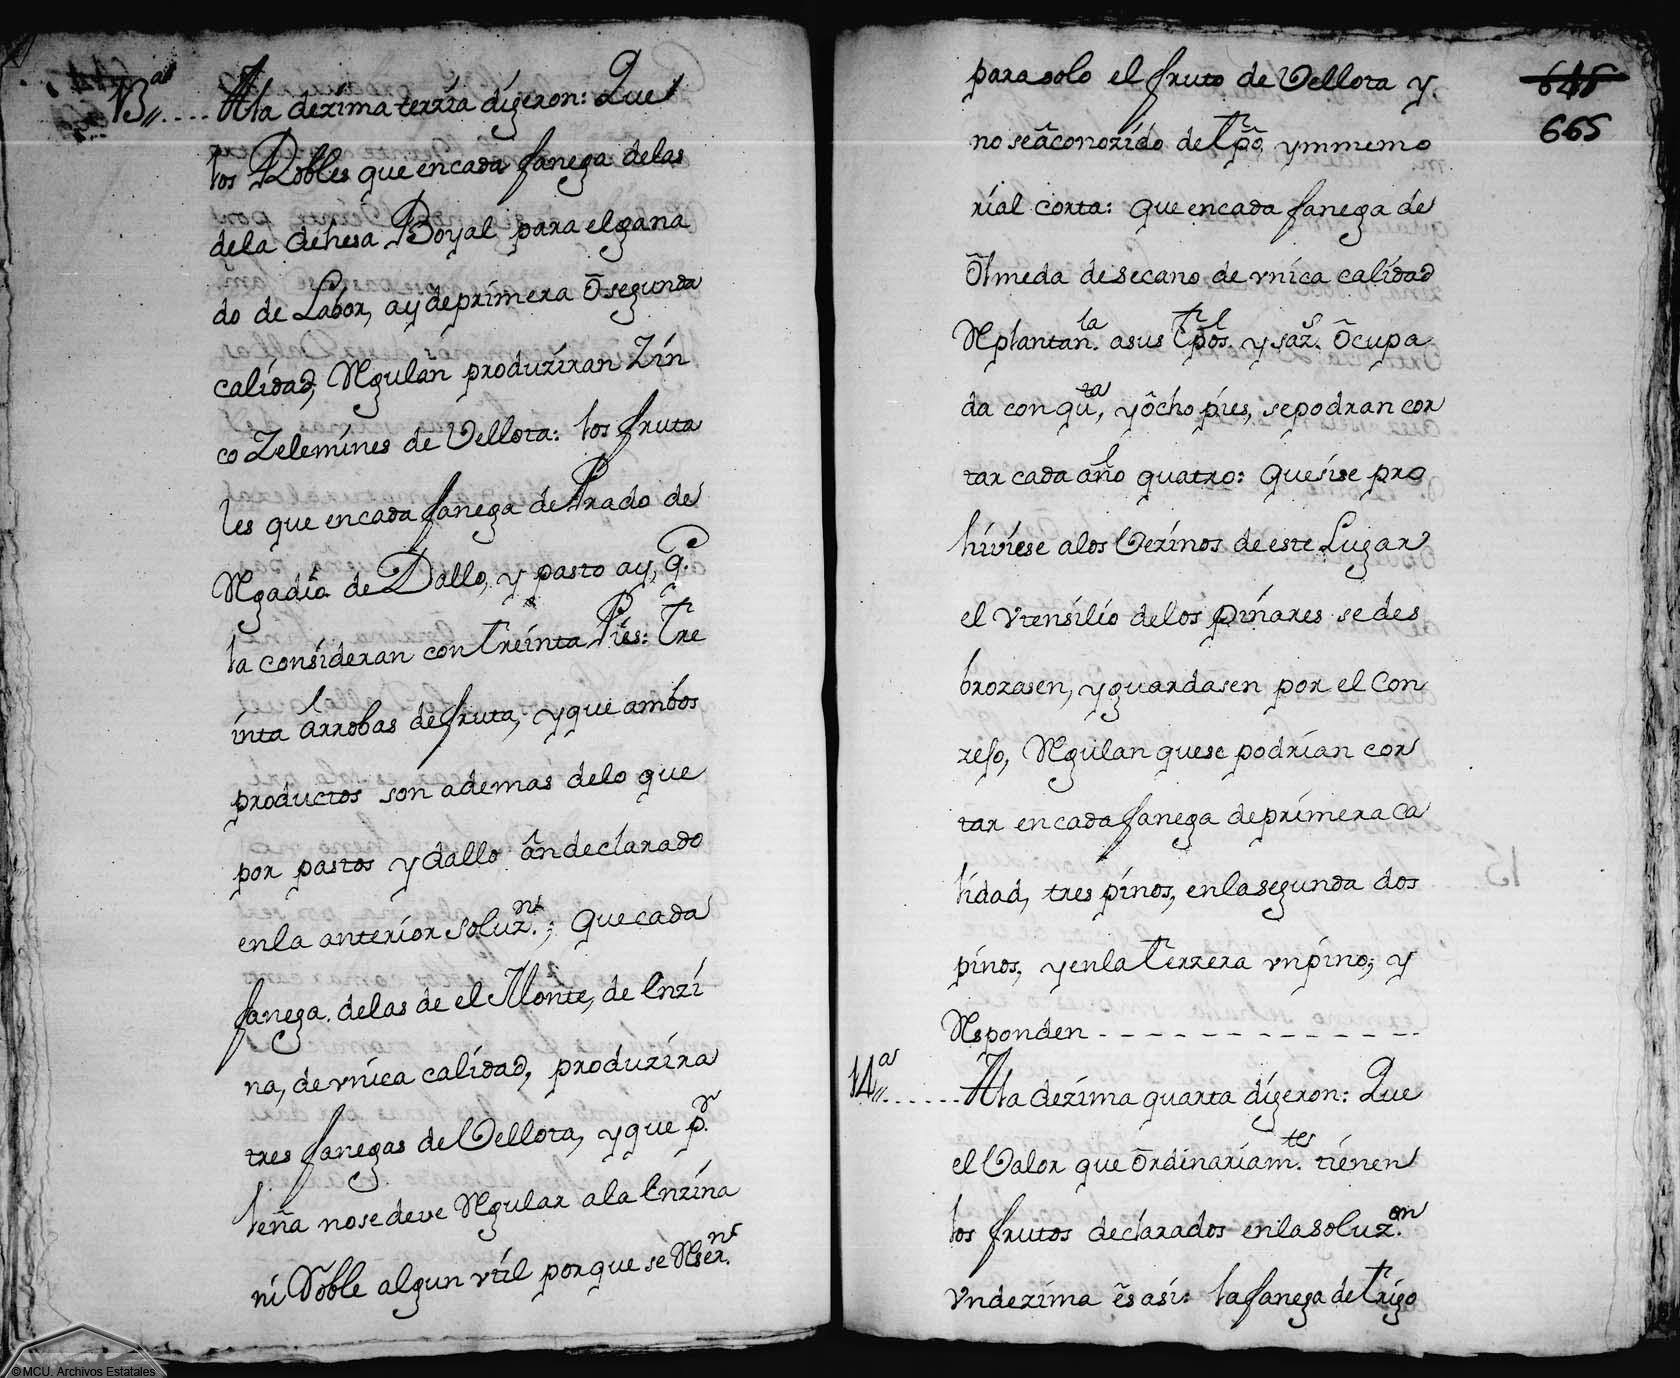 13.as .... A la dezima terzia dijeron: Que
los Robles que en cada fanega de las
de la dehesa Boyal para el gana
do de Labor, ay de primera ô segunda
calidad, Regulan produziran Zin
co Zelemines de Vellota: los fruta
les que en cada fanega de Prado de
Regadío de Dallo, y pasto ay, q.e
la consideran con treinta Pies: tre
inta arrobas de fruta; y que ambos
productos son ademas de lo que
por pastos y dallo ân declarado
en la anterior soluz.on; Que cada
fanega de las de el Monte, de Enzi
na, de vnica calidad, produzira
tres fanegas de Vellota, y que p.r
leña no se deve Regular a la Enzina
ni Roble algun vtil porque se Reser.n
para solo el fruto de Vellota y
no se â conozido de tpô ymmemo
rial corta: Que en cada fanega de
Olmeda de secano de vnica calidad
Replantan.la a sus tpôs. y saz.s ôcupa
da con qu.ta, y ôcho pies, se podran cor
tar cada año quatro: Que si se pro
hiviese a los Vezinos de este Lugar
el vtensilio de los pinares se des
brozasen, y guardasen por el Con
zejo, Regulan que se podrian cor
tar en cada fanega de primera ca
lidad, tres pinos, en la segunda dos
pinos, y en la terzera vn pino; y
Responden - - - - - - - - - - -
14.as .... A la dezima quarta dijeron: Que
el Valor que ôrdinariam.tes tienen
los frutos declarados en la soluz.on
vndezima ês asi: la fanega de trigo
645
665
15
©MCU. Archivos Estatales